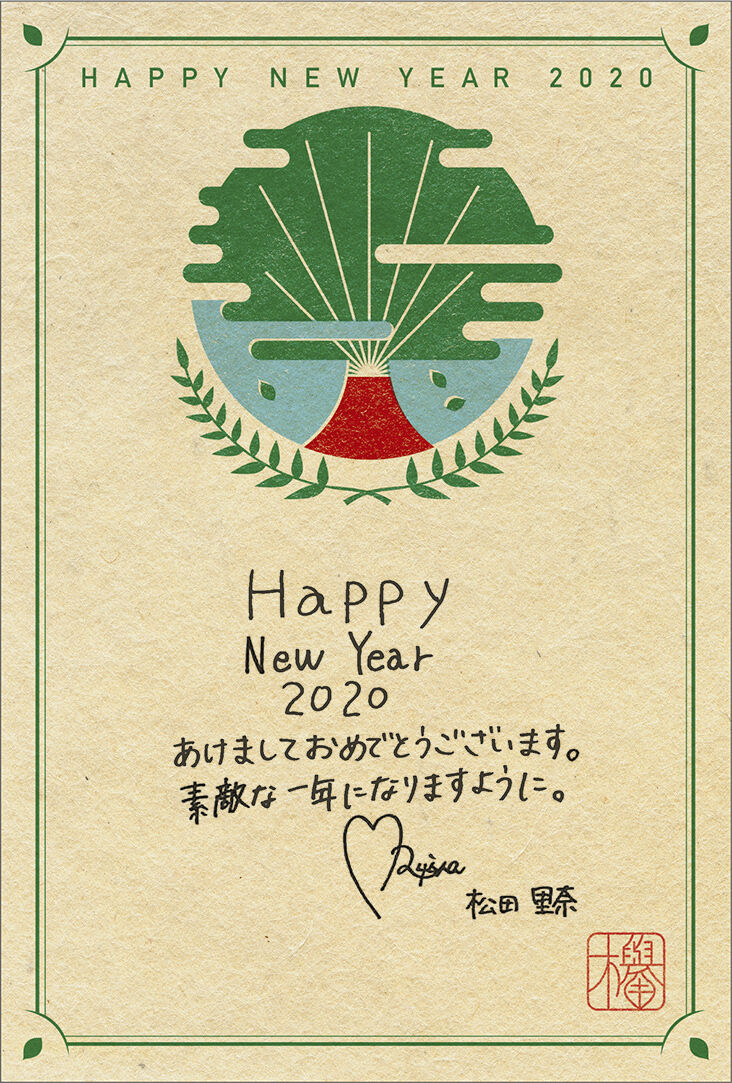 HAPPY NEW YEAR 2020
Happy
New Year
2020
あけましておめでとうございます。
素敵な一年になりますように。
松田 里奈
欅